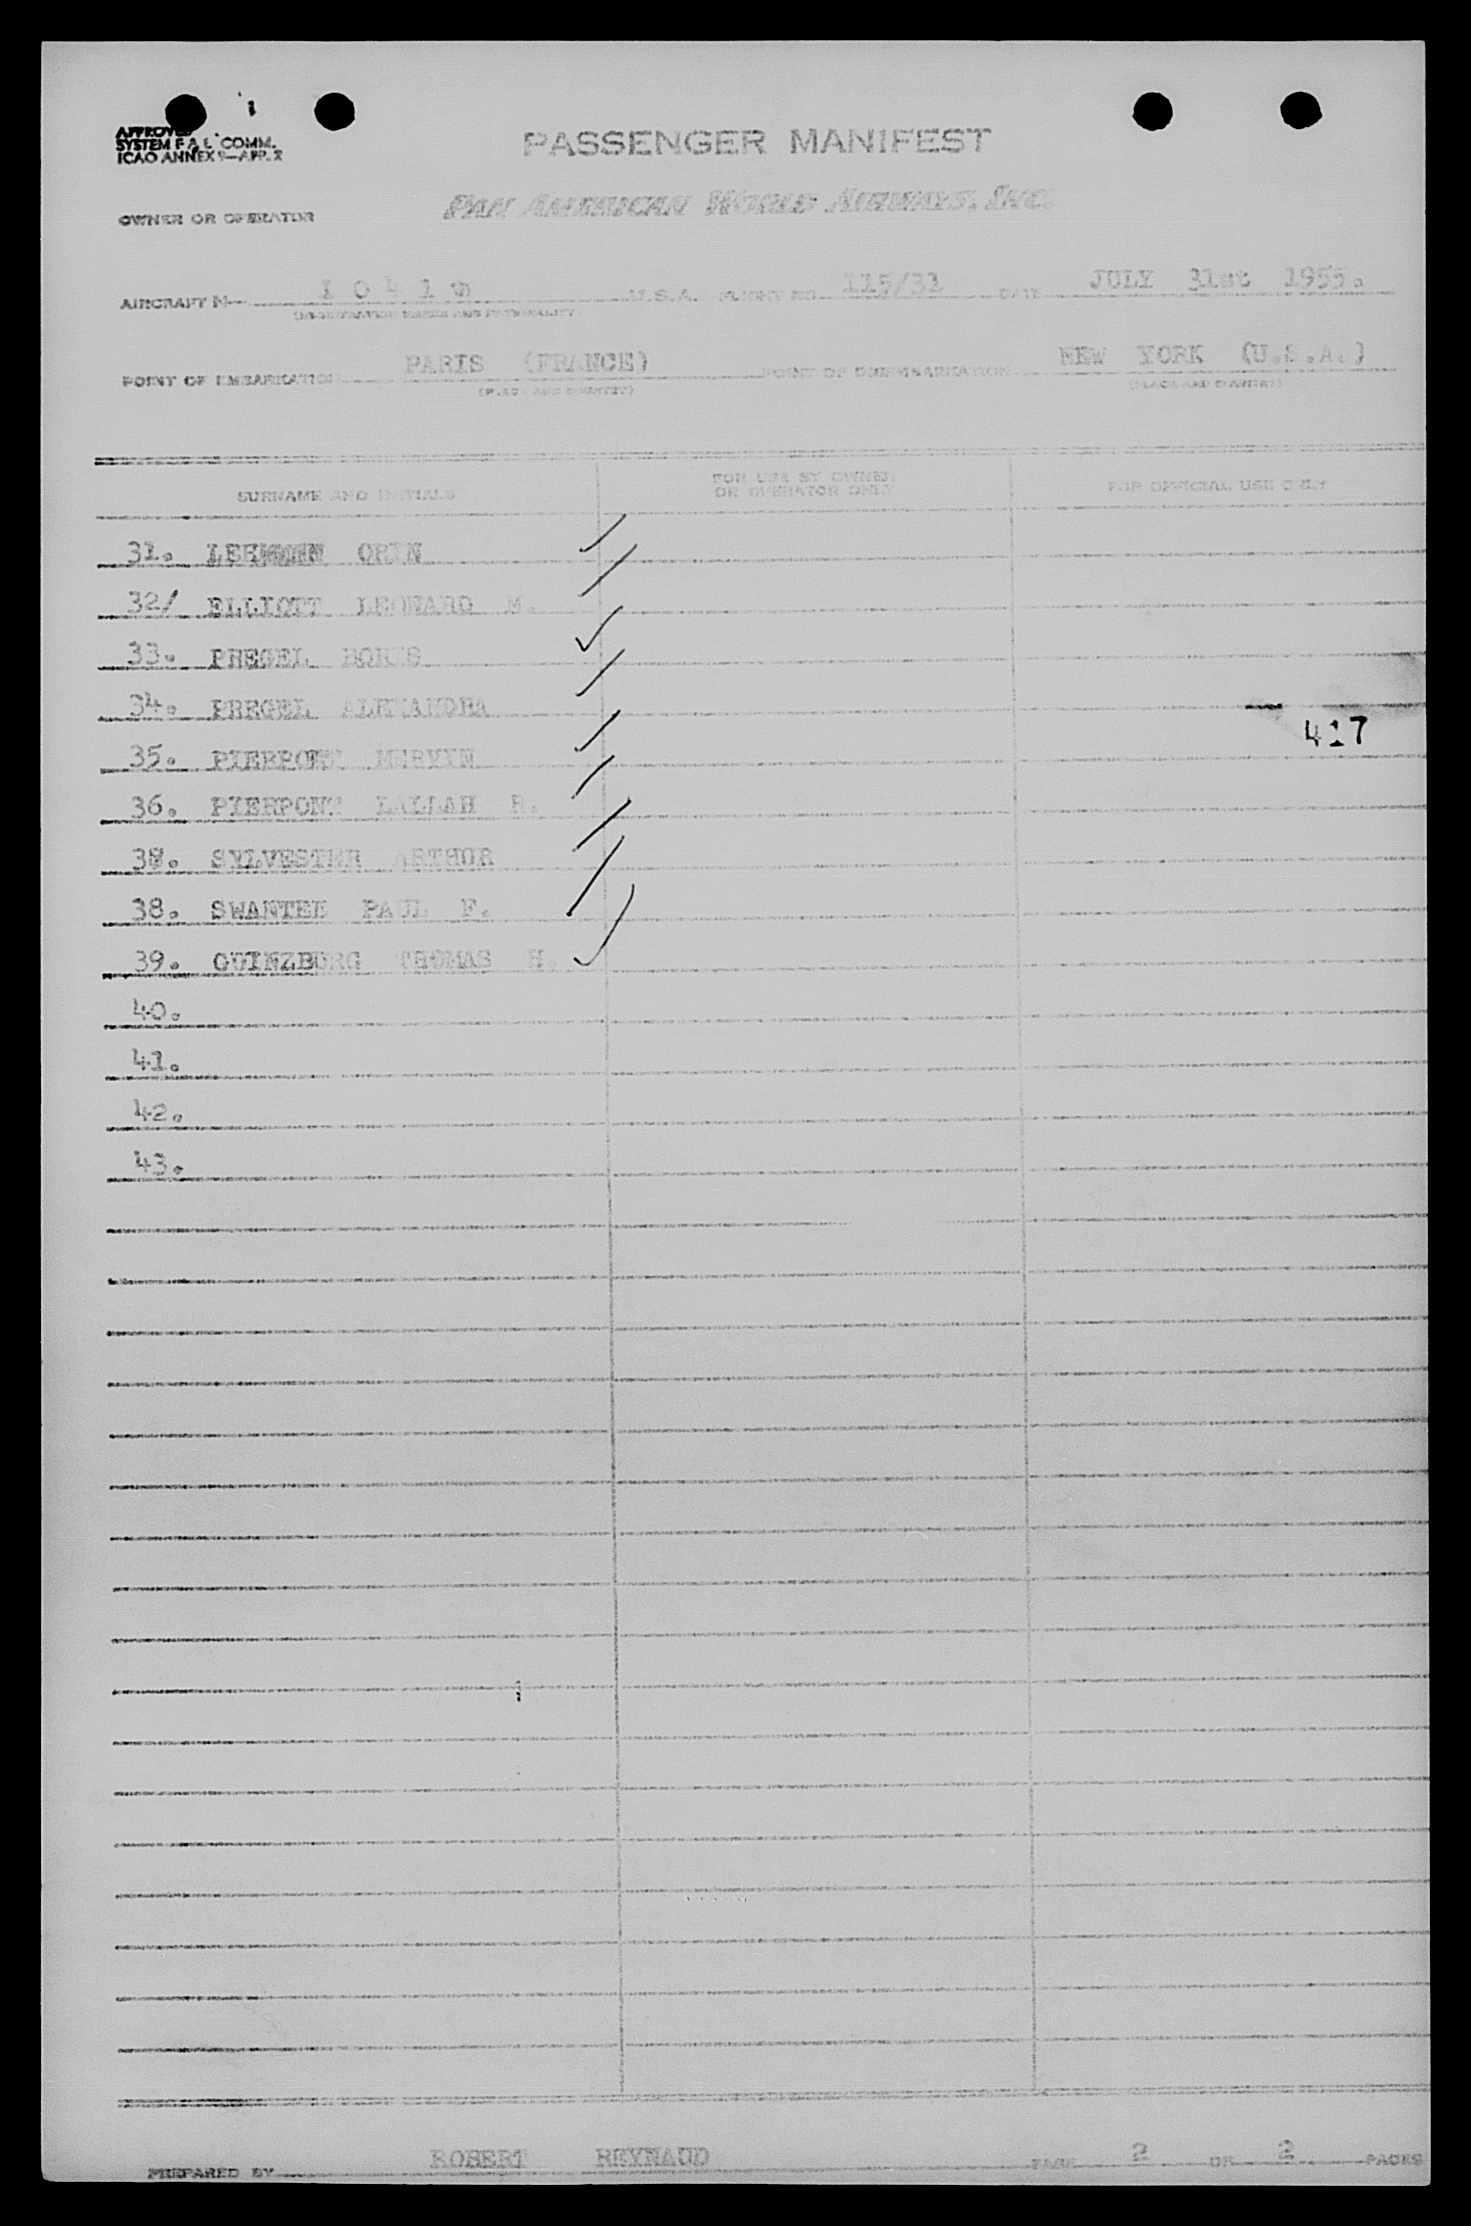 APPROVED
SYSTEM F A L COMM.
ICAO ANNEX 9—APP. 2
PASSENGER MANIFEST
OWNER OR OPERATOR PAN AMERICAN WORLD AIRWAYS, INC.
AIRCRAFT N— 1 0 4 1 U.S.A. FLIGHT NO. 115/31 DATE JULY 31st 1955.
(REGISTRATION MARKS AND NATIONALITY)
POINT OF EMBARKATION PARIS (FRANCE) POINT OF DISEMBARKATION NEW YORK (U.S.A.)
(PLACE AND COUNTRY) (PLACE AND COUNTRY)
SURNAME AND INITIALS FOR USE BY OWNER OR OPERATOR ONLY FOR OFFICIAL USE ONLY
31. ORIN
32/ ELLIOTT LEONARD M.
33. PREGEL BORIS
34. PREGEL ALEXANDRA
417
35. PIERPONT MERVIN
36. PIERPONT LALLAH R.
38. SYLVESTER ARTHUR
38. SWANTEE PAUL F.
39. GUINZBURG THOMAS H.
40.
41.
42.
43.
PREPARED BY ROBERT REYNAUD PAGE 2 OF 2 PAGES